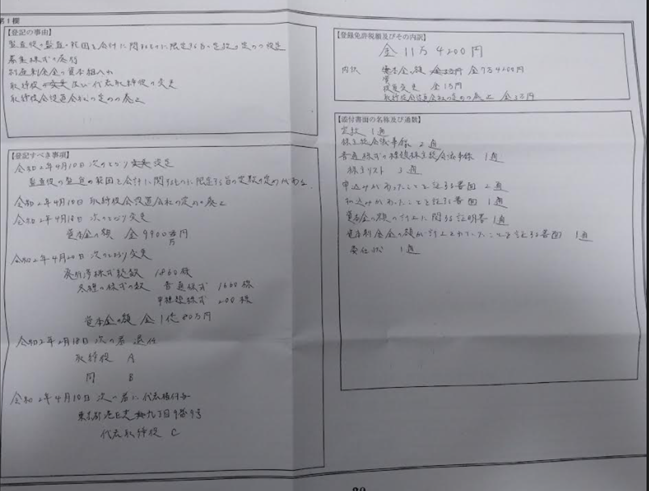 第1欄
【登記の事由】
監査役の監査の範囲を会計に関するものに限定する旨の定款の定めの設定
募集株式の発行
準備金の資本組入れ
取締役の変更及び代表取締役の変更
取締役会設置会社の定めの廃止
【登記すべき事項】
令和2年4月10日 次のとおり 設定
監査役の監査の範囲を会計に関するものに限定する旨の定款の定めがある。
令和2年4月10日 取締役会設置会社の定めの廃止
令和2年4月18日 次のとおり変更
資本金の額 金9900万円
令和2年4月20日 次のとおり変更
発行済株式総数 1860株
各種の株式の数 普通株式 1660株
甲種類株式 200株
資本金の額 金1億80万円
令和2年2月18日 次の者 退任
取締役 A
同 B
令和2年4月10日 次の者に代表権付与
東京都港区 九丁目9番9号
代表取締役 C
【登録免許税額及びその内訳】
金11万4200円
内訳
役員変更 金1万円
取締役会設置会社の定めの廃止 金3万円
【添付書面の名称及び通数】
定款 1通
株主総会議事録 2通
普通株式の種類株主総会議事録 1通
株主リスト 3通
申込みがあったことを証する書面 2通
払込みがあったことを証する書面 1通
資本金の額の計上に関する証明書 1通
計上されていたことを証する書面 1通
委任状 1通